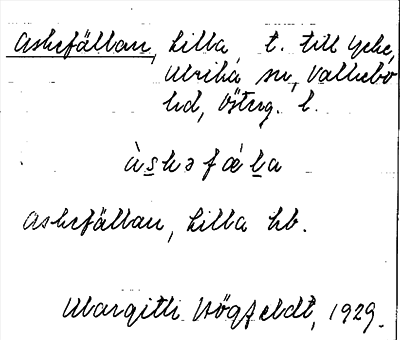 Askefällan, Lilla, t. till Yxhe,
Ulrika sn, Valkebo
hd, Österg. l.
àskəfǽla
Askefällan, Lilla hb.
Margitti Högfeldt, 1929.